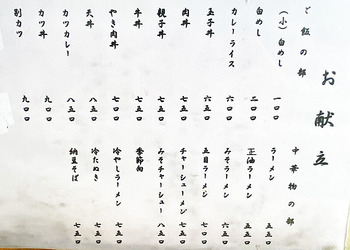 お献立
ご飯の部
(小)白めし 一〇〇
白めし 二〇〇
カレーライス 六五〇
玉子丼 六五〇
肉丼 七五〇
親子丼 七〇〇
牛丼 七五〇
やき肉丼 七五〇
天丼 八五〇
カツカレー 八五〇
カツ丼 九〇〇
別カツ 九〇〇
中華物の部
ラーメン 五五〇
正油ラーメン 五五〇
みそラーメン 六五〇
五目ラーメン 七五〇
チャーシューメン 七五〇
みそチャーシュー 八五〇
季節向
冷やしラーメン 七五〇
冷たぬき 七五〇
納豆そば 七五〇